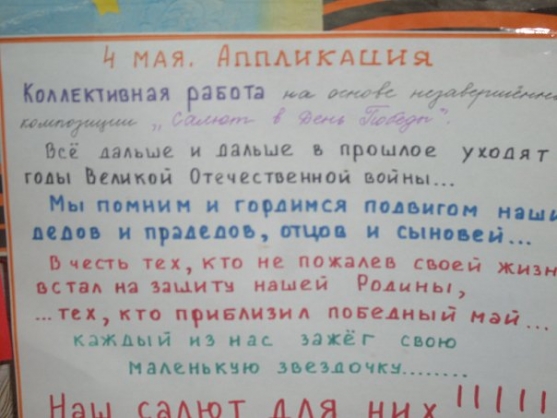 4 МАЯ. АППЛИКАЦИЯ
КОЛЛЕКТИВНАЯ РАБОТА на основе незавершённо
композиции „Салют в День Победы".
Всё дальше и дальше в прошлое уходят
годы Великой Отечественной войны...
Мы помним и гордимся подвигом наши
дедов и прадедов, отцов и сыновей...
В честь тех, кто не пожалев своей жизн
встал на защиту нашей Родины,
...тех, кто приблизил победный май...
каждый из нас зажёг свою
маленькую звездочку........
Наш салют для них !!!!!